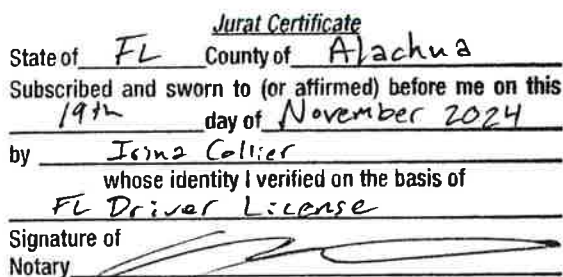 Jurat Certificate
State of FL County of Alachua
Subscribed and sworn to (or affirmed) before me on this
19th day of November 2024
by Irina Collier
whose identity I verified on the basis of
FL Driver License
Signature of
Notary